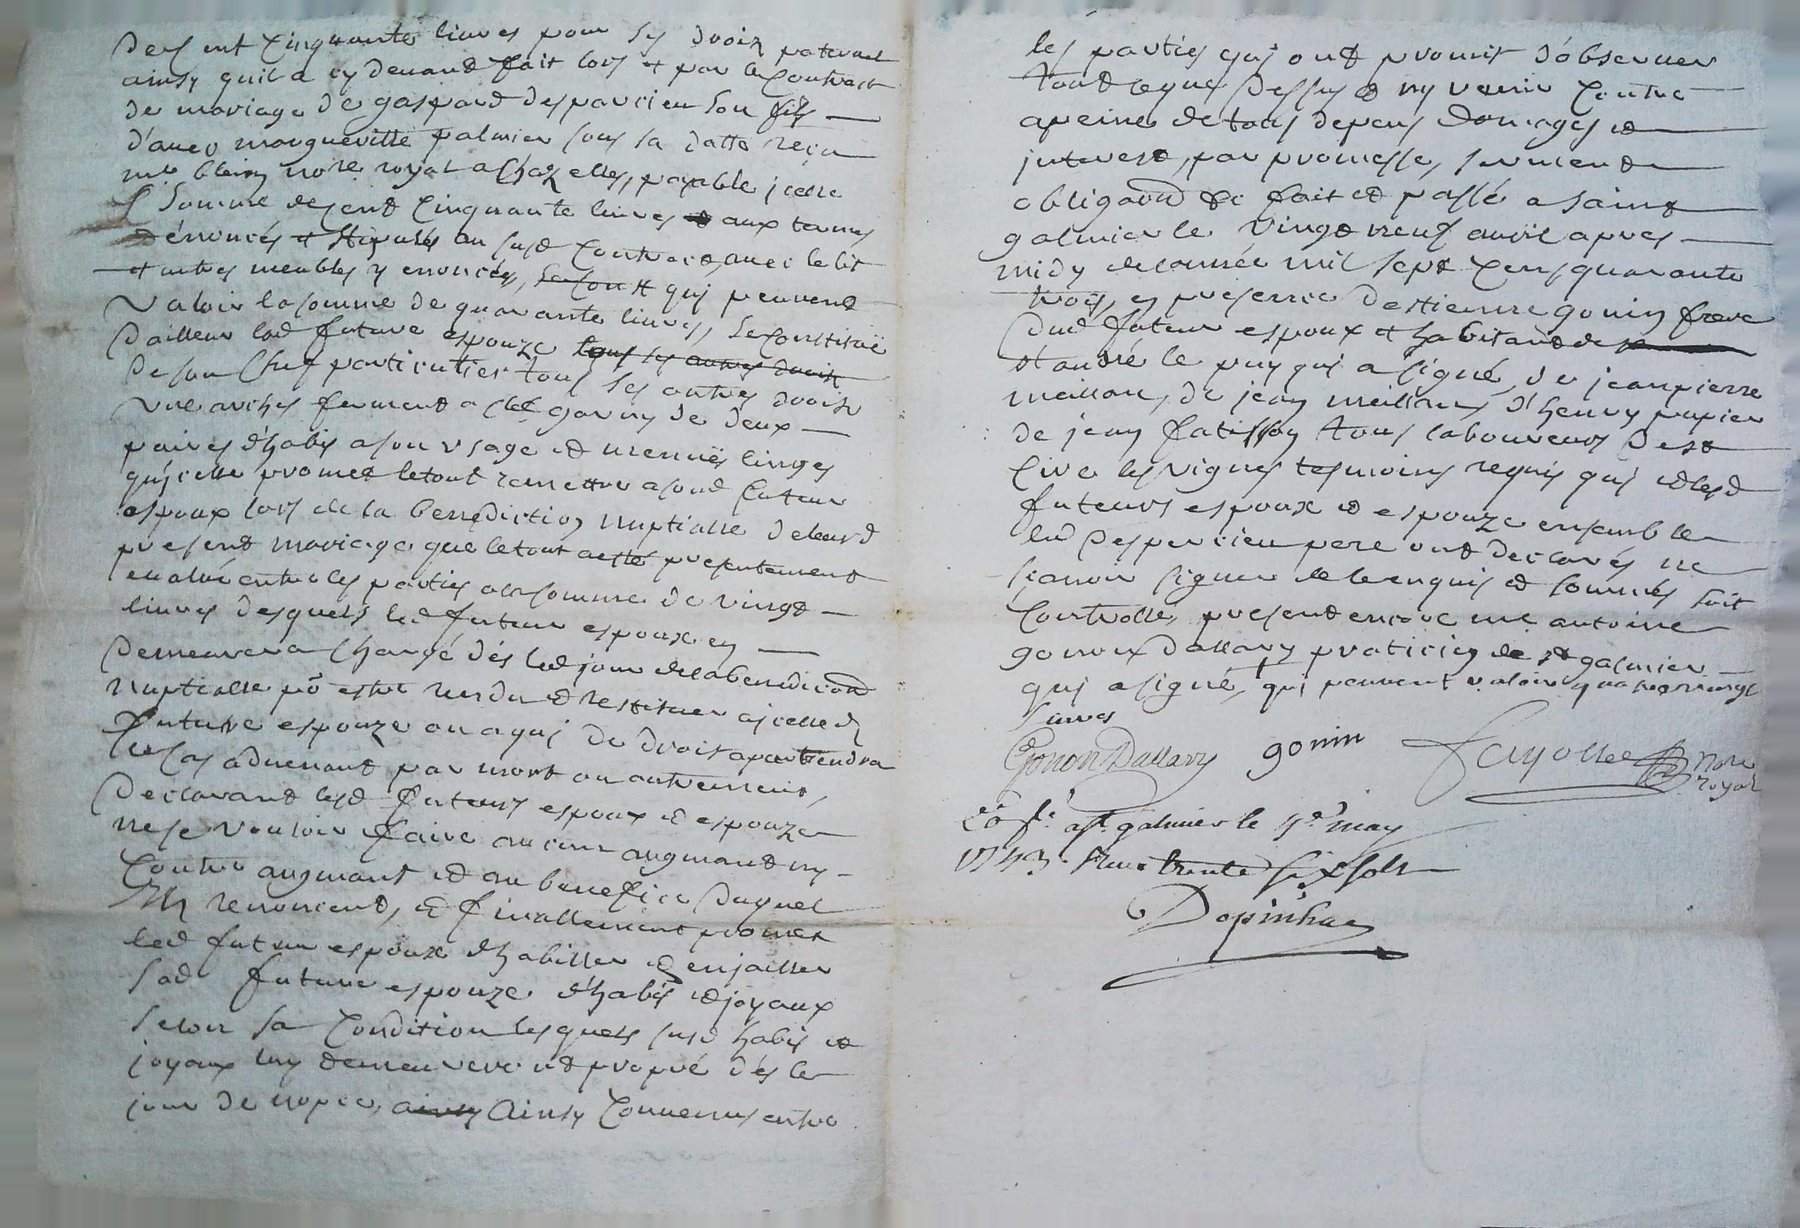 de cent cinquante livres pour ses droits paternel
ainsy quil a cy devant fait lors et par le contract
de mariage de gaspard desparcieu son fils
d'avec margueritte palmier sous sa datte reçu
me nore royal a Chazelles, payable icelle
Somme de cent cinquante livres aux termes
énoncés et stipulés au susd contract, avec le lit
et autres meubles y enoncés, qui peuvent
valoir la somme de quarante livres, se constitüe
dailleur lad future espouze tous ses autres droits
de son chef particulier tous ses autres droits
une arches fermant a clef garny de deux
paires d'habis a son usage et menuës linges
qu'icelle promet le tout remettre a sond futeur
espoux lors de la benediction nuptialle de leurd
present mariage que le tout a esté presentement
evalué entre les parties a la somme de vingt
livres desquels led futeur espoux en
demeurera chargé dés led jour de la benediction
nuptialle po estre rendu et restituer a icelle d
future espouze ou a qui de droit apartiendra
le cas advenant par mort ou autrement,
declarant lesd futeurs espoux et espouze
ne se vouloir faire aucun augmant ny
contre augmant et au benefice duquel
Ils renoncent, et finallement promet
led futeur espoux d'habiller et enjoaller
sad future espouze d'habis et joyaux
selon sa condition lesquels susd habis et
joyaux luy demeureront propre dés le
jour de nopce, ainsy Ainsy convenus entre
les parties qui ont promis d'observer
tout ce que dessus et ny venir contre
a peine de tous depens domages et
interest, par promesse, serment
obligaon &c fait et passé a saint
galmier le vingt neuf avril apres
midy de l'année mil sept cens quarante
trois, en presence d'estienne gonin frere
dud futeur espoux et habitant de
st andré le puy qui a signé, de jean pierre
meillan, de jean d'henry papier
de jean fatisson tous laboureurs de st
Cire les vignes tesmoins requis qui et lesd
futeurs espoux et espouze ensemble
led desparcieu pere ont declarés ne
sçavoir signer de ce enquis et sommés soit
controlle, present encore me antoine
gonon dallary praticien de st galmier
qui a signé, + qui peuvent valoir quatre vingt
livres
Gonon Dallary gonin fayolle nore
royal
Coñlé a st galmier le 5e may
1743. Reçu trente six sols
Depinhac